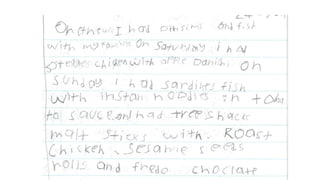 I had and fish
with my on Saturday i had
chicken with APPle Danish on
Sunday I had sardines fish
with instan noddles in toma
to sauce and had tree snacks
malt sticks with ROAST
Chicken, sesame seeds
rolls and fredo choclate